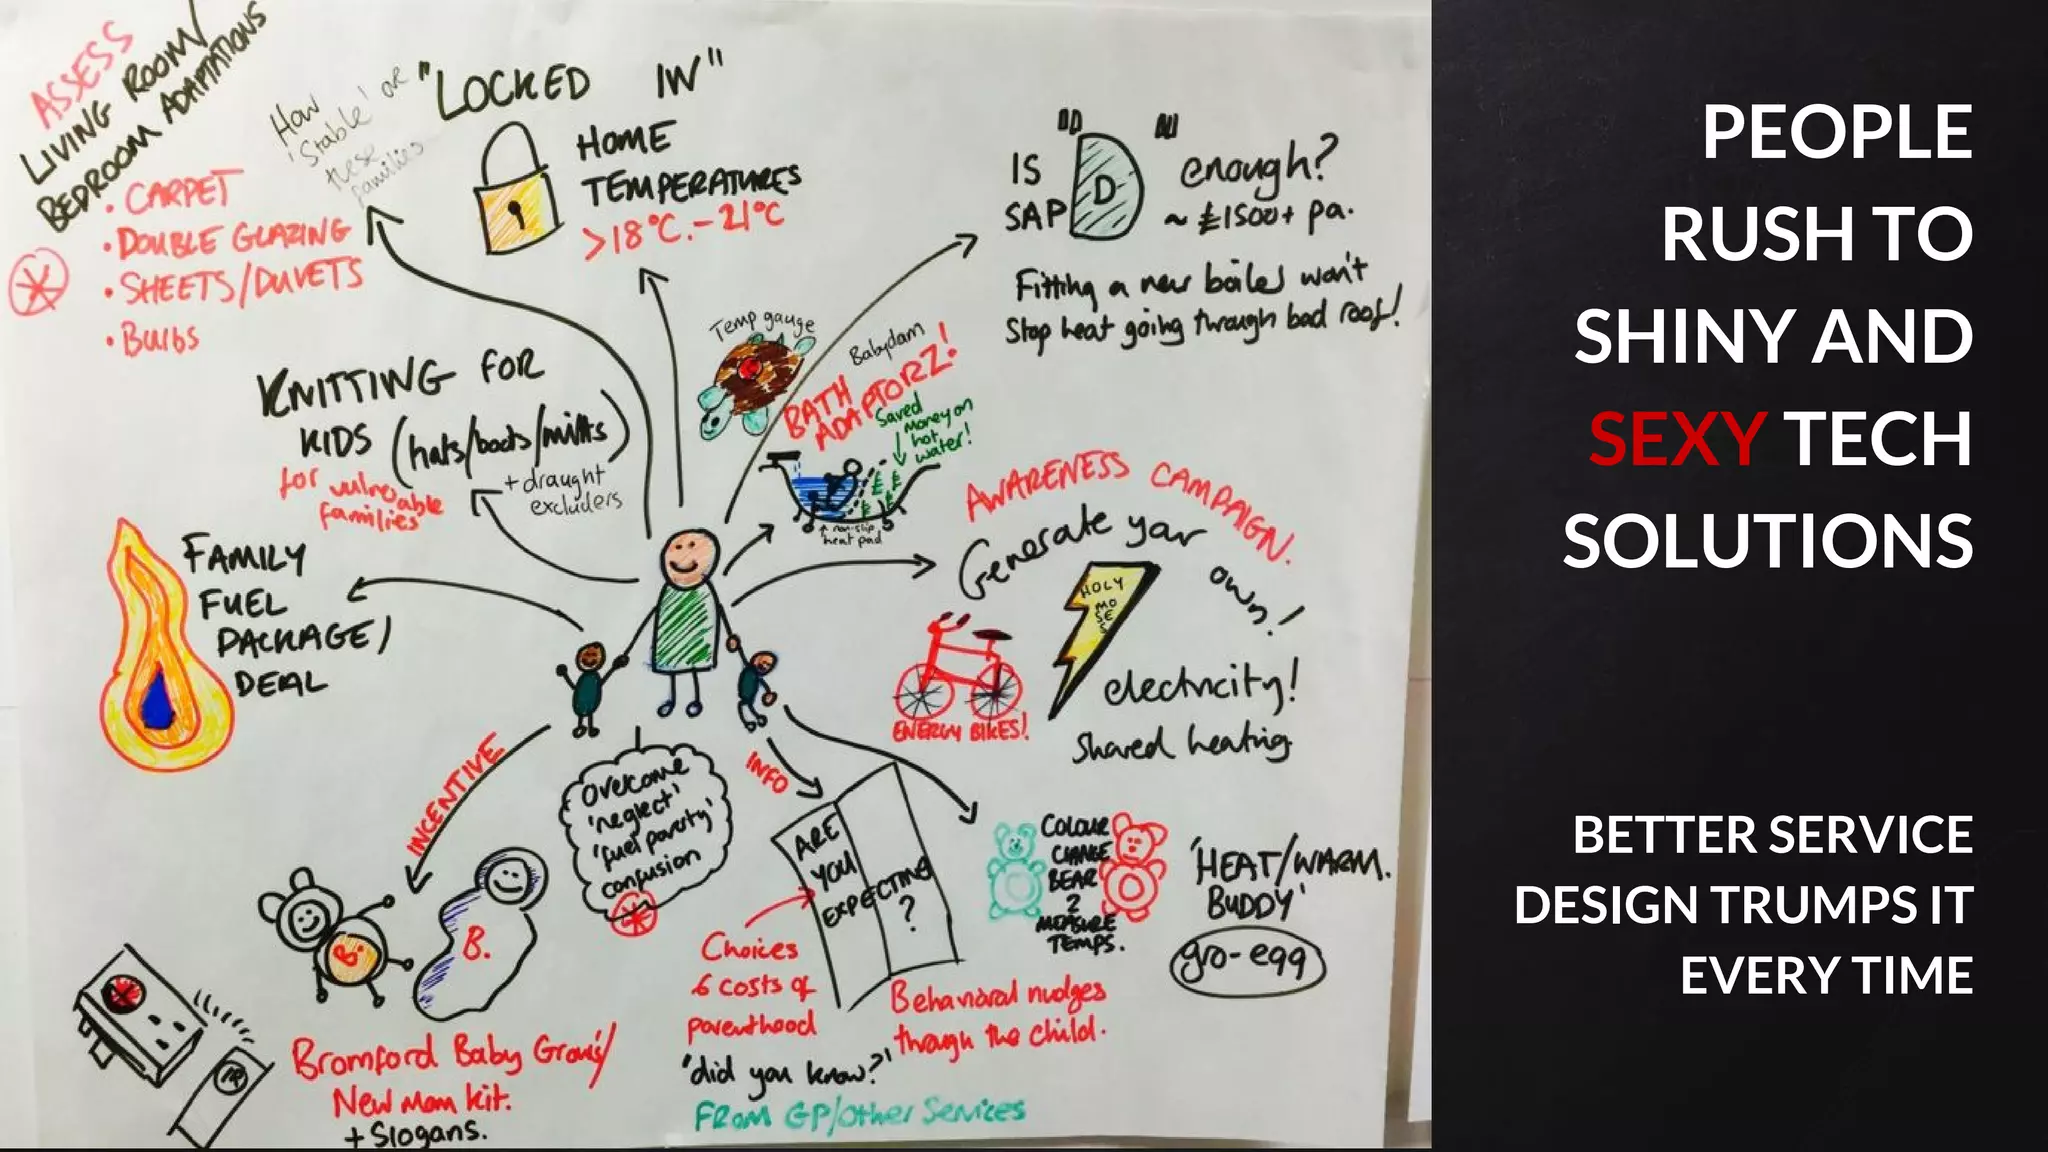 ASSESS
LIVING ROOM/
BEDROOM ADAPTATIONS
• CARPET
• DOUBLE GLAZING
• SHEETS/DUVETS
• Bulbs
How
'Stable' are
these
families
"LOCKED IN"
HOME
TEMPERATURES
>18°C.-21°C
IS
SAP
"D"
enough?
~ £1500+ pa.
Fitting a new boiler won't
Stop heat going through bad roof!
Temp gauge
Babydam
BATH
ADAPTORZ!
Saved
money on
hot
water!
non-slip
heat pad
KNITTING FOR
KIDS (hats/boots/mitts)
for vulnerable
families
+ draught
excluders
FAMILY
FUEL
PACKAGE/
DEAL
AWARENESS CAMPAIGN.
Generate your own!
HOLY
MO
SE
S
electricity!
Shared heating
ENERGY BIKES!
INCENTIVE
overcome
'neglect'
'fuel poverty'
confusion
INFO
ARE
YOU
EXPECTING
?
Choices
& costs of
parenthood
Behavioral nudges
through the child.
'did you know?'
FROM GP/Other Services
COLOUR
CHANGE
BEAR
2
MEASURE
TEMPS.
'HEAT/WARM.
BUDDY'
gro-egg
B.
B.
Bromford Baby Grow's/
New Mom kit.
+ Slogans.
PEOPLE
RUSH TO
SHINY AND
SEXY TECH
SOLUTIONS
BETTER SERVICE
DESIGN TRUMPS IT
EVERY TIME